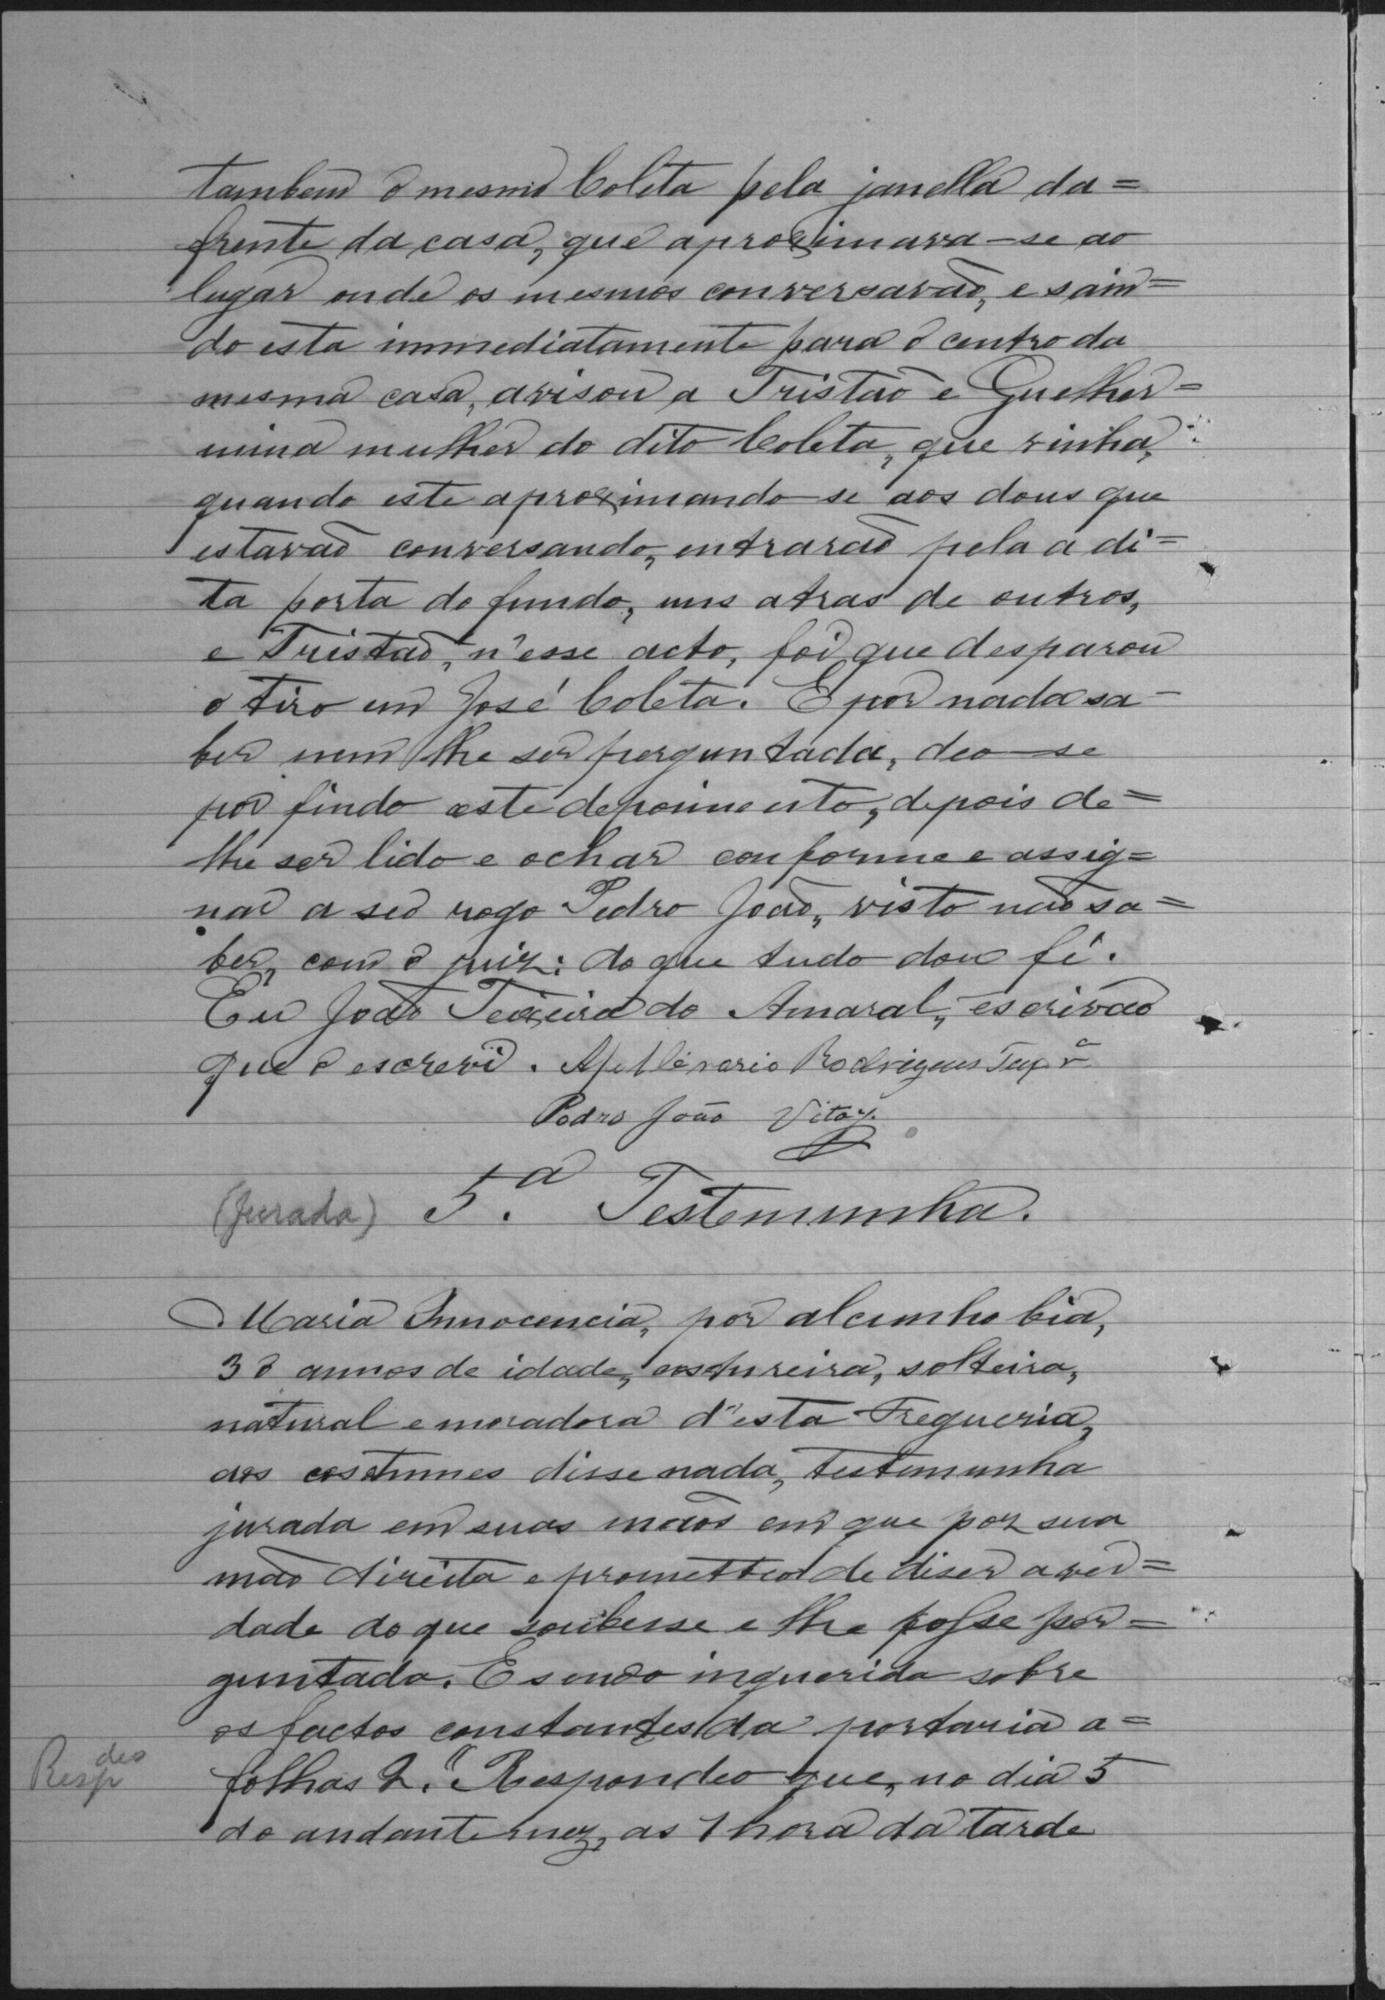 tambem o mesmo Coleta pela janella da=
frente da casa, que aproximava-se ao
lugar onde os mesmos conversavão, e sain=
do esta immediatamente para o centro da
mesma casa, avisou a Tristão e Guelher=
mina mulher do dito Coleta, que vinha,
quando este aproximando-se aos dous que
estavão conversando, entrarão pela a di=
ta porta do fundo, uns atras de outros,
e Tristão, n'esse acto, foi que desparou
o tiro em José Coleta. E por nada sa-
ber nem lhe ser perguntada, deo-se
por findo este depoimento, depois de=
lhe ser lido e achar conforme e assig=
nar a seo rogo Pedro João, visto não sa=
ber, com o juiz: do que tudo dou fé.
Eu João Teixeira do Amaral, escrivão
que o escrevi. Rodrigues Teixrª
Pedro João
(Jurada) 5.ª Testemunha.
Maria Innocencia, por alcunho Cia,
30 annos de idade, costureira, solteira,
natural e moradora d'esta Fregueria,
aos costumes disse nada, testemunha
jurada em suas mãos em que poz sua
mão direita e prometteo de diser a ver=
dade do que soubesse e lhe fosse per=
guntado. E sendo inquerida sobre
os factos constantes da portaria a=
Respdeo folhas 2." Respondeo que, no dia 5
do andante mez, as 1 hora da tarde